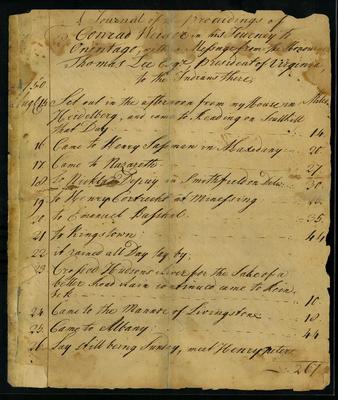 A Journal of the proceedings of
Conrad Weiser in his Journey to
Onontago, with a Message from the Honou
Thomas Lee Esqr. president of Virginia
to the Indians there
1750
Augt 15 Set out in the afternoon from my House in Miles
Heidelberg, and came to Reading on Scullkill
that Day 14
16 Came to Henry in Maxidany 20
17 Came to Nazareth 27
18 to Nicklas Depuy in Smithfield on Dela 30
19 to Henry Cortrecht at Menissing
20 to Emanuel Pasqhal 35
21 to Kingstown 44
22 it rained all Day lay by
23 Crossed Hudsons River for the Sake of a
better Road
10
24 Came to the Mannor of Livingstone 18
25 Came to Albany 44
26 Lay still being Sunday, meet Henry
261